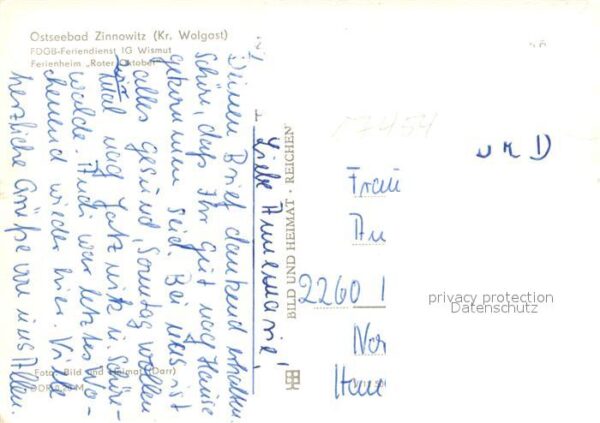 Ostseebad Zinnowitz (Kr. Wolgast)
FDGB-Feriendienst IG Wismut
Ferienheim „Roter Oktober"
Liebe Annemarie!
Deinen Brief dankend erhalten.
Schön, dass Ihr gut nach Hause
gekommen seid. Bei uns ist
alles gesund, Sonntag wollen
wir
mal nach u. Schön-
walde. Andi war letztes Wo-
chenend wieder hier. Viele
herzliche Grüße von uns Allen
Foto: Bild und Heimat (Darr)
DDR 0,20 M
BILD UND HEIMAT · REICHEN
17454
Frau
An
2260 1
Nor
privacy protection
Datenschutz